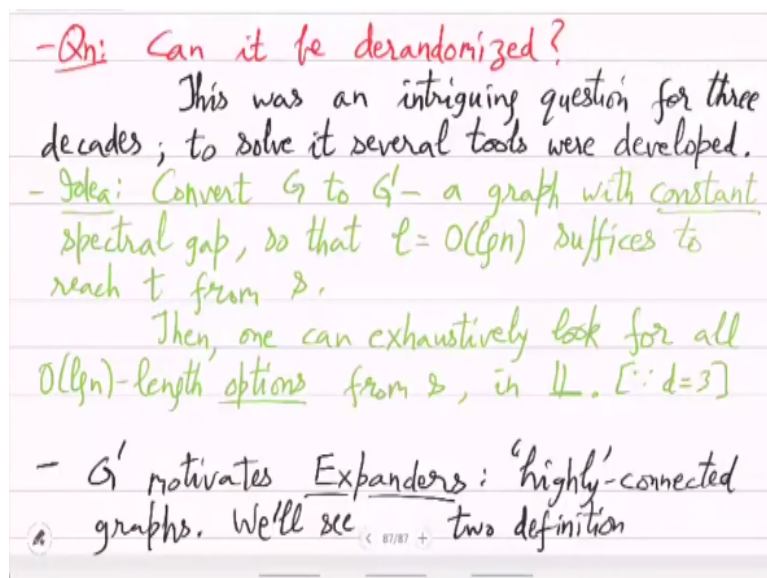 -Qn: Can it be derandomized?
This was an intriguing question for three
decades; to solve it several tools were developed.
- Idea: Convert G to G' - a graph with constant
spectral gap, so that l = O(lgn) suffices to
reach t from s.
Then, one can exhaustively look for all
O(lgn)-length options from s, in L. [∵ d=3]
- G' motivates Expanders: 'highly'-connected
graphs. We'll see two definition
< 87/87 +